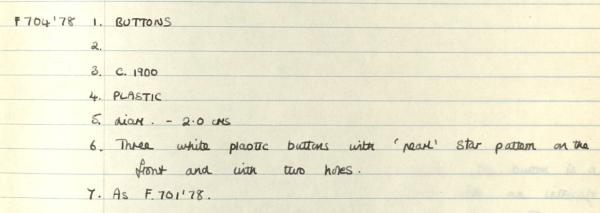 F704'78 1. BUTTONS
2.
3. C. 1900
4. PLASTIC
5. diam. - 2.0 cms
6. Three white plastic buttons with 'pearl' star pattern on the
front and with two holes.
7. As F.701'78.